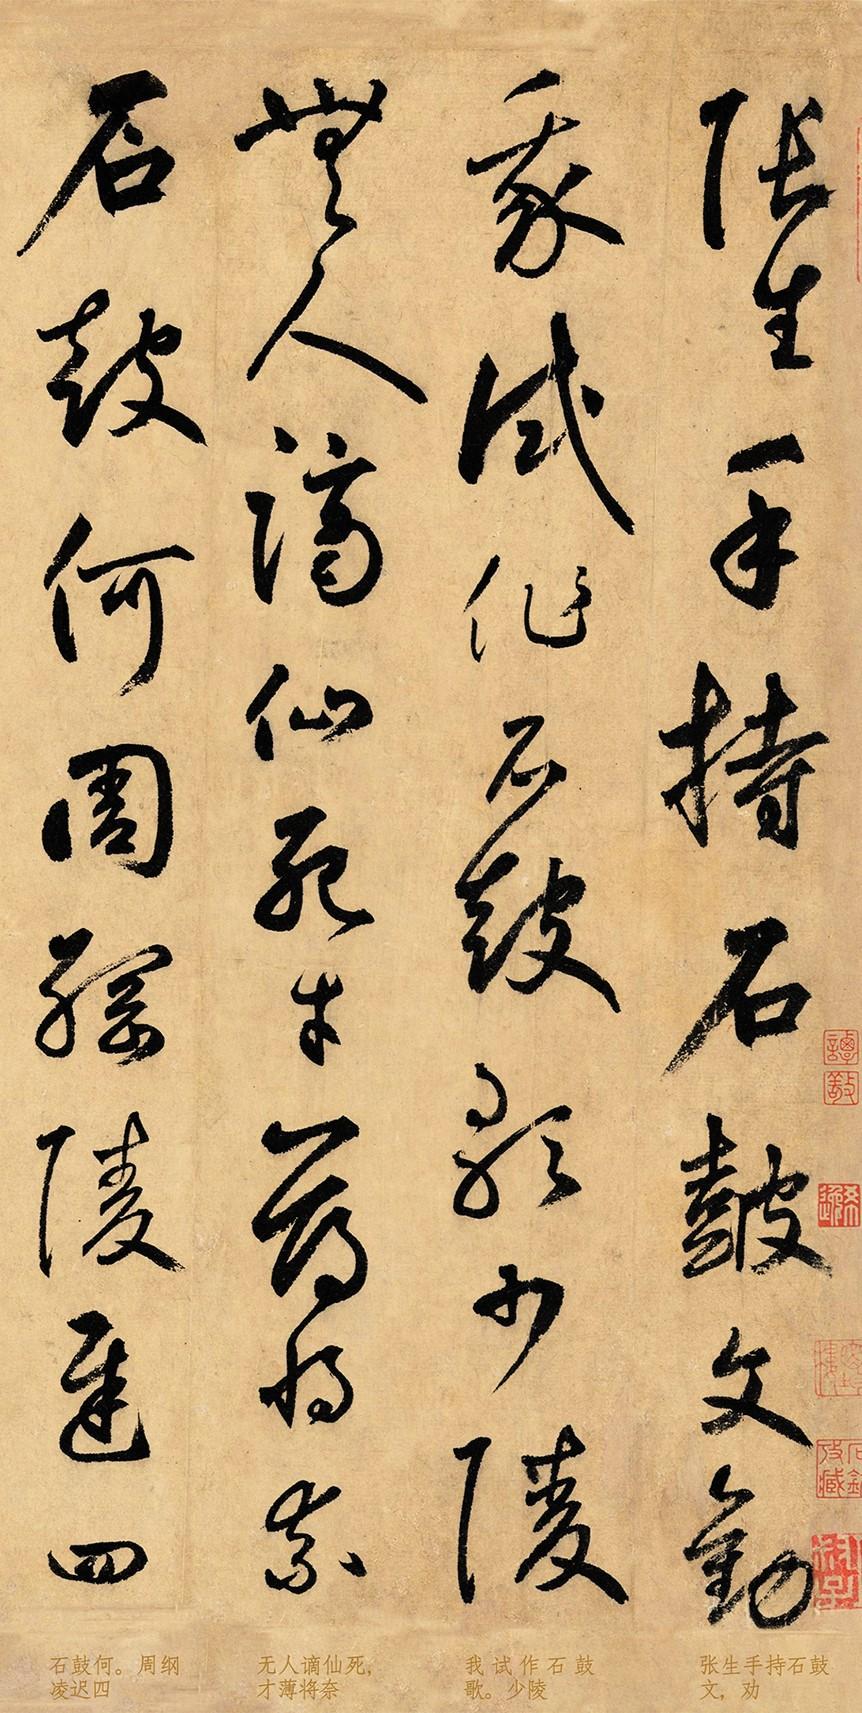 张生手持石鼓文劝
我试作石鼓歌少陵
無人謫仙死才薄将奈
石鼓何周綱陵遲四
张生手持石鼓
文，劝
我试作石鼓
歌。少陵
无人谪仙死，
才薄将奈
石鼓何。周纲
凌迟四